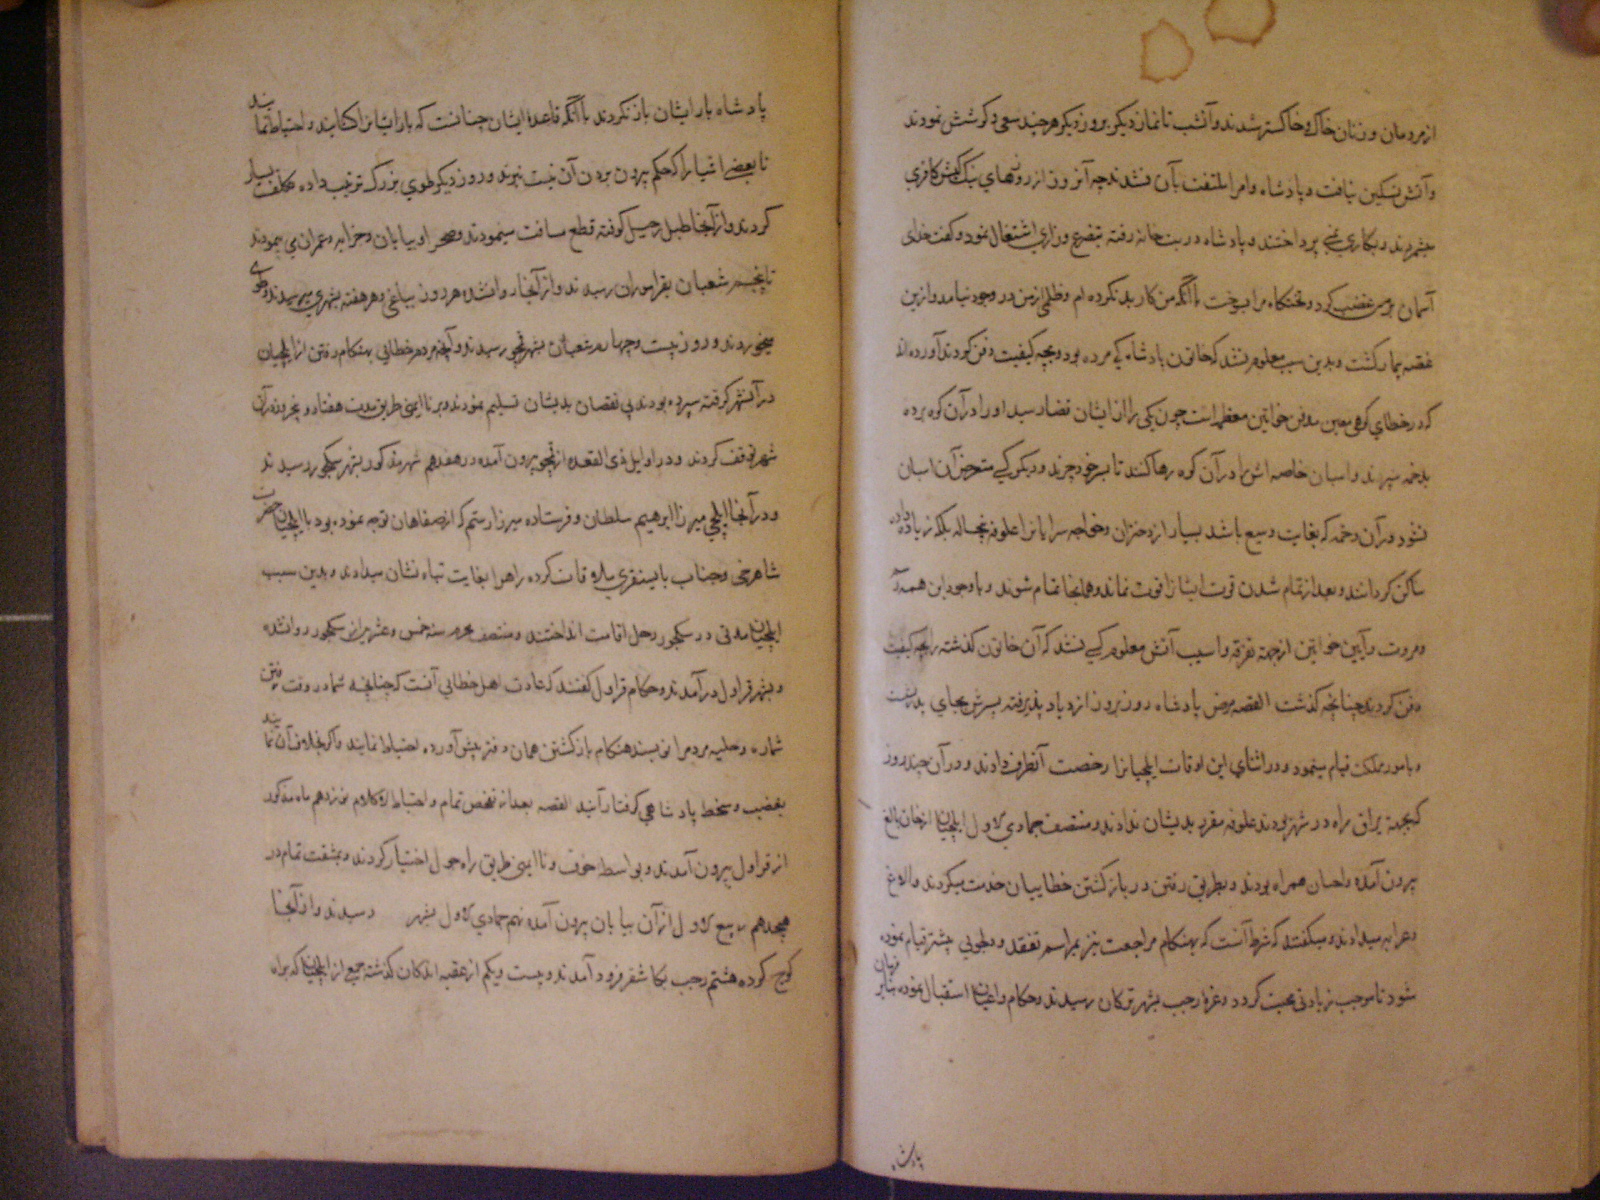 از مردمان و زنان خاک و خاکستر شدند و آتشب تا نماز دیگر بروز دیگر هر چند سعی و کوشش نمودند
و آتش تسکین نیافت و پادشاه و امرا ملتفت بآن نشدند چه آنروز از روزهای نیک کیش کافری
میشمردند و بکاری نمی پرداختند و پادشاه در بت خانه رفته بتضرع و زاری اشتغال نمود و گفت خدای
آسمان بر من غضب کرد و تختگاه مرا بسوخت با آنکه من کار بد نکرده ام و ظلمی از من در وجود نیامد و ازین
غصه بیمار گشت و بدین سبب معلوم نشد که خاتون پادشاه کی مرده بود و بچه کیفیت دفن کردند آورده اند
که در خطای کوهی معین مدفن خواتین معظمه است چون یکی را از ایشان قضا رسید او را در آن کوه برده
بدخمه سپرند و اسبان خاصه اش را در آن کوه رها کنند تا بسر خود چرند و دیگر کسی متعرض آن اسبان
نشود و در آن دخمه که بغایت وسیع باشد بسیار از دختران و خواجه سرایانرا علوفه پنجساله بلکه زیاده داده
ساکن گردانند و بعد از تمام شدن قوت ایشانرا قوت نماند و همانجا تمام شوند و با وجود این همه
و آیین خواتین از جهة تفرقه و آسیب آتش معلوم کسی نشد که آن خاتون گذشته را بچه کیفیت
دفن کردند چنانچه گذشت القصه مرض پادشاه روز بروز ازدیاد پذیرفته پسرش بجای پدر
و بامور مملکت قیام مینمود و در اثنای این اوقات ایلچیانرا رخصت انطراف دادند و در آن چند روز
که بجهة یراق راه در شهر بودند علوفه مقرر بدیشان ندادند و منتصف جمادی الاول ایلچیان از خان بالغ
بیرون آمده و همراه بودند و بطریق رفتن در باز گشتن خطاییان خدمت میکردند و الاغ
و عرابه میدادند و میگفتند که شرط آنست که بهنگام مراجعت نیز بمراسم تفقد و دلجویی بیشتر قیام نموده
شود تا موجب زیادتی محبت گردد و غره رجب بشهر رسیدند و حکام و اعیان استقبال نموده بنابر فرمان
پادشاه
پادشاه بار ایشان باز نکردند با آنکه قاعده ایشان چنانست که بار ایشانرا کشایند و احتیاط نمایند
تا بعضی اشیا را که حکم بیرون بردن آن نیست نبرند و روز دیگر طوی بزرگ ترتیب داده تکلف بسیار
کردند و از آنجا طبل رحیل کوفته قطع مسافت مینمودند و صحرا و بیابان و خرابه و عمران می پیمودند
تا پنجم شعبان بقراموران رسیدند و از آنجا روان شده هر روز بیامی و هر هفته بشهری میرسیدند و طوی
میخوردند و روز بیست و چهارم شعبان بشهر قمجو رسیدند و آنچه مردم خطایی بهنگام رفتن از ایلچیان
در آن شهر گرفته سپرده بودند بی نقصان بدیشان تسلیم نمودند و بر نا ایمنی طریق مدت هفتاد و پنج روز در آن
شهر توقف کردند و در اوایل ذی القعده از قمجو بیرون آمده در هفدهم شهر مذکور بشهر سکجو رسیدند
و در آنجا ایلچی میرزا ابرهیم سلطان و فرستاده میرزا رستم که از صفاهان توجه نموده بود با ایلچیان حضرت
شاهرخی و جناب بایسنقری ملاقات کرده راه را بغایت تباه نشان میدادند و بدین سبب
ایلچیان مدتی در سکجو رحل اقامت انداختند و منتصف محرم سنه خمس و عشرین از سکجو روانشده
و بشهر قراول در آمدند و حکام قراول گفتند که عادت اهل خطایی آنست که چنانچه شما در وقت رفتن
شماره و حلیه مردم را نویسند هنگام باز گشتن همان دفتر پیش آورده احتیاط نمایند و اگر بخلاف آن نمایند
بغضب و سخط پادشاهی گرفتار آیند القصه بعد از تفحص تمام و احتیاط لاکلام نوزدهم ماه مذکور
از قراول بیرون آمدند و بواسطه خوف و نا ایمنی طریق راه چول اختیار کردند و بمشقت تمام در
هجدهم ربیع الاول از آن بیابان بیرون آمده نهم جمادی الاول بشهر رسیدند و از آنجا
کوچ کرده هشتم رجب بکاشغر فرود آمدند و بیست و یکم از عقبه اندکان گذشته جمیع از ایلچیان که براه